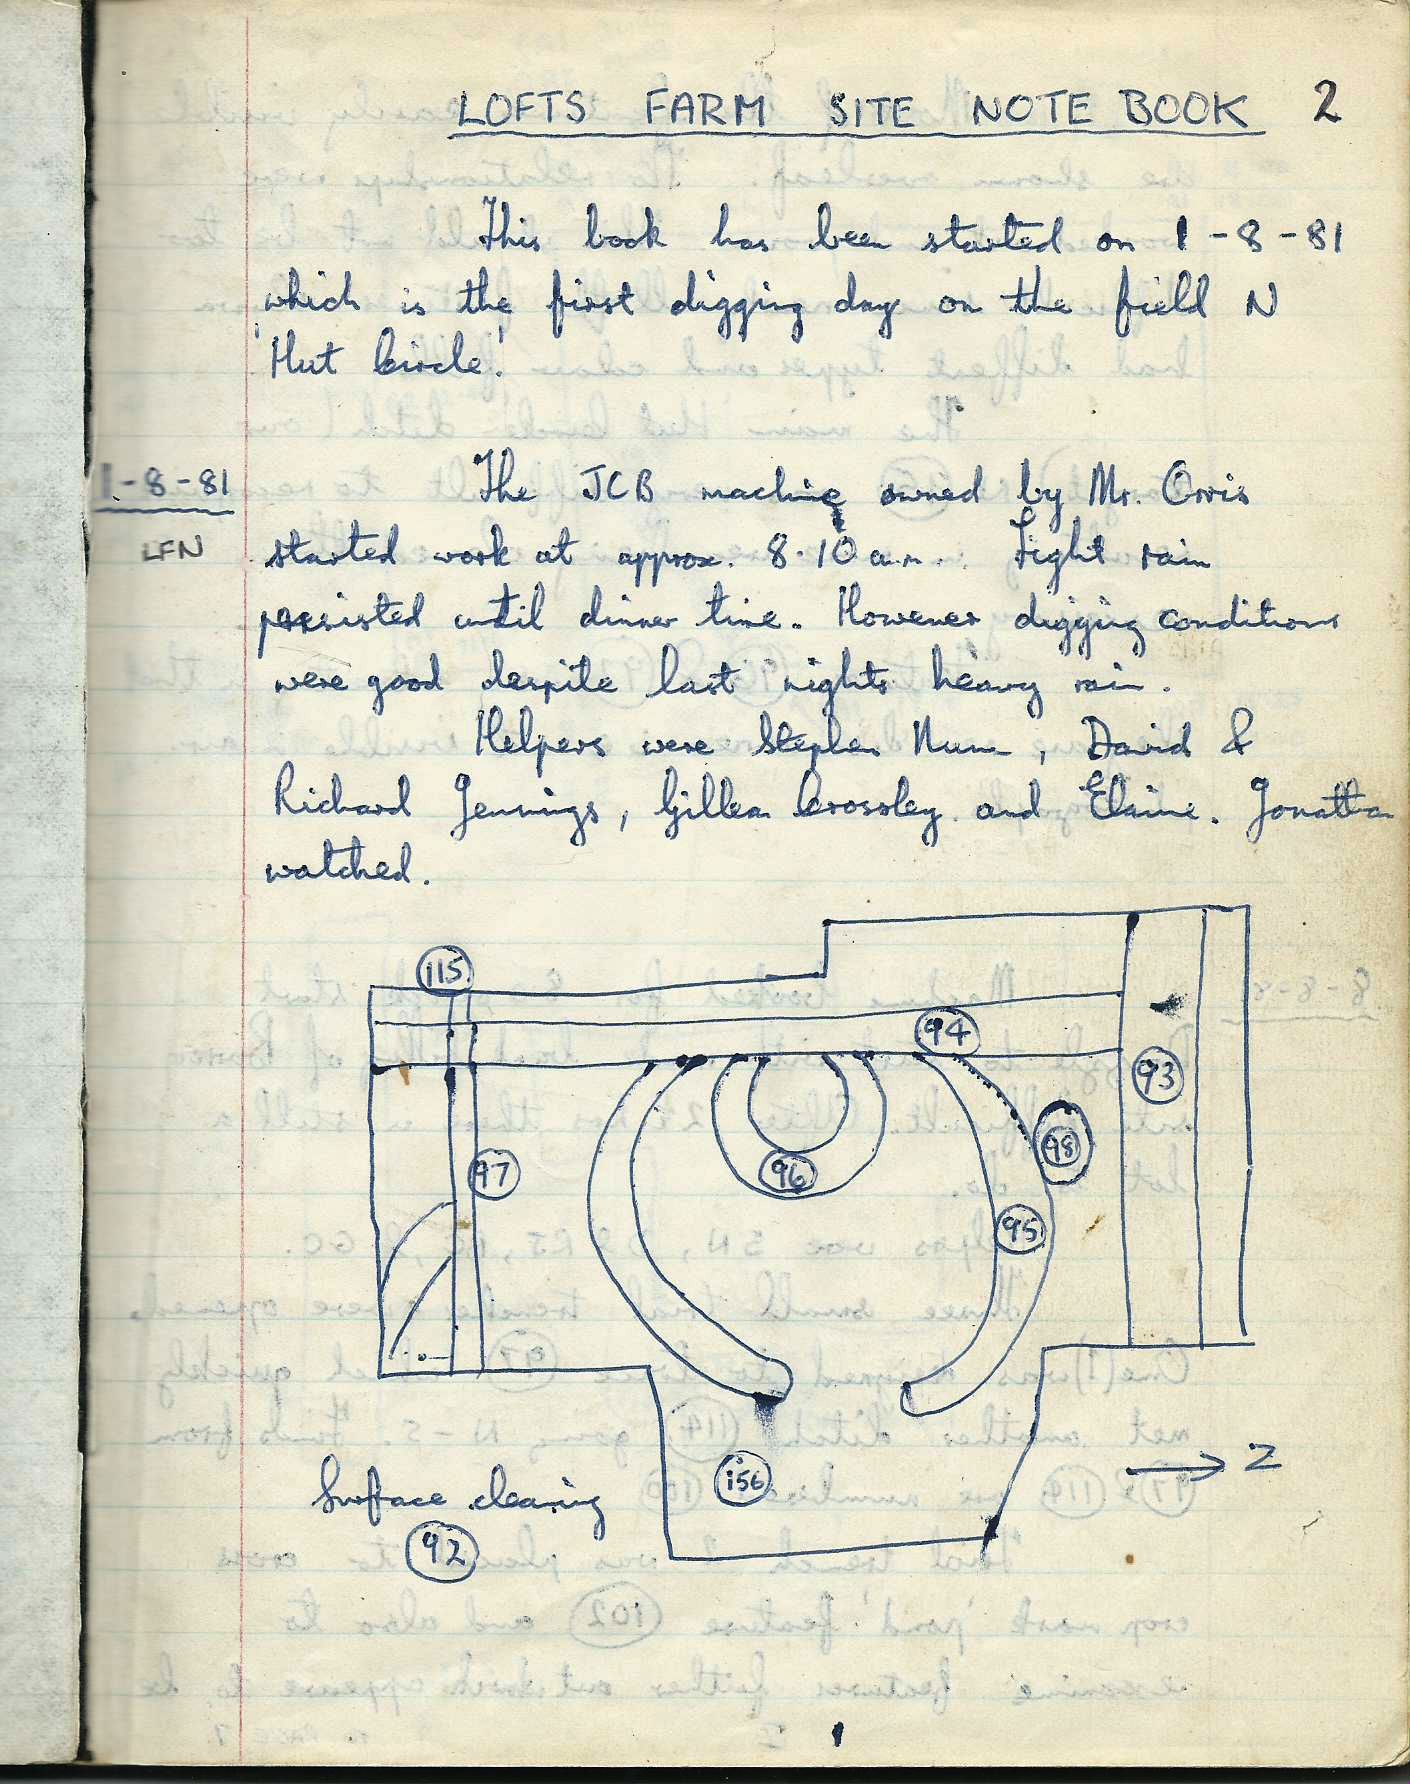 LOFTS FARM SITE NOTE BOOK 2
This book has been started on 1-8-81
which is the first digging day on the field N
'Hut Circle'.
1-8-81
The JCB machine owned by Mr. Orris
LFN
started work at approx. 8·10 a.m. Light rain
persisted until dinner time. However digging conditions
were good despite last nights heavy rain.
Helpers were Stephen Nunn, David &
Richard Jennings, Gillian Crossley and Elaine. Jonathan
watched.
115
94
93
98
97
96
95
156
Z
Surface cleaning
92
1